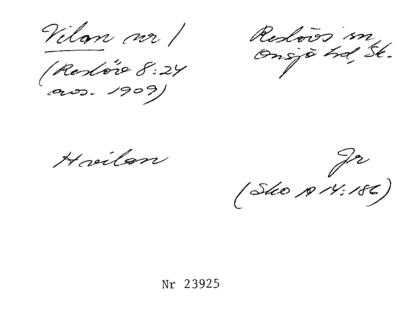 Vilan nr 1
(Reslöv 8:24
avs. 1909)
Reslövs sn,
Onsjö hd, Sk.
Hvilan
Jr
(Sko A 14:186)
Nr 23925